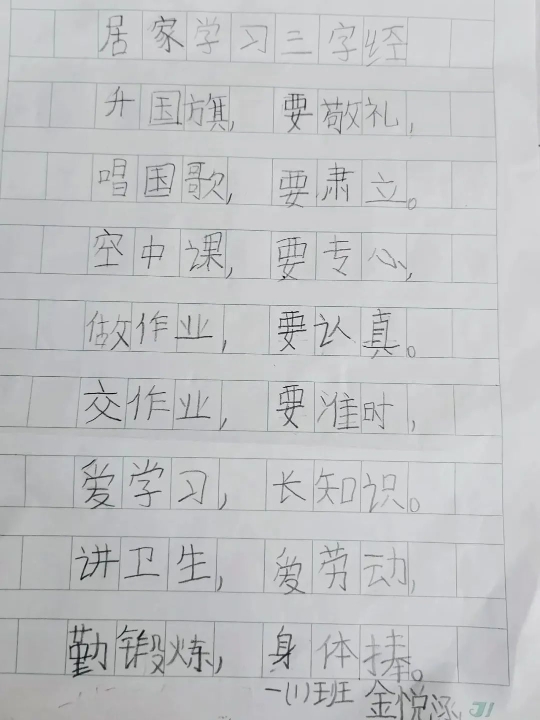 居家学习三字经
升国旗，要敬礼，
唱国歌，要肃立。
空中课，要专心，
做作业，要认真。
交作业，要准时，
爱学习，长知识。
讲卫生，爱劳动，
勤锻炼，身体捧。
一(1)班 金悦涵